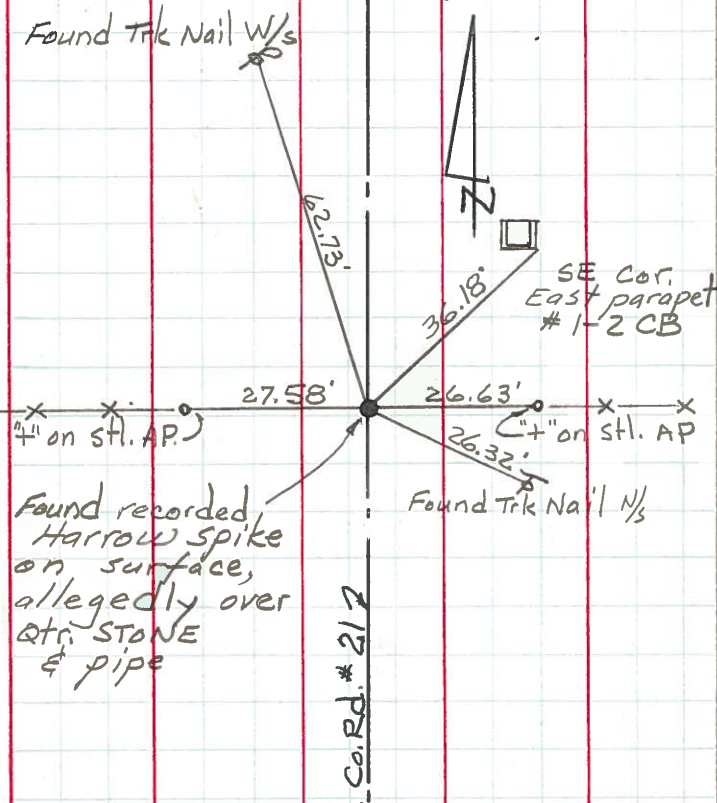 Found Trk Nail W/s
62.73'
N
36.18'
SE Cor.
East parapet
# 1-2 CB
27.58'
26.63'
"+" on Stl. AP.
"+" on Stl. AP
26.32'
Found Trk Nail N/s
Found recorded
Harrow spike
on surface,
allegedly over
Qtr. STONE
& pipe
Co. Rd. # 21